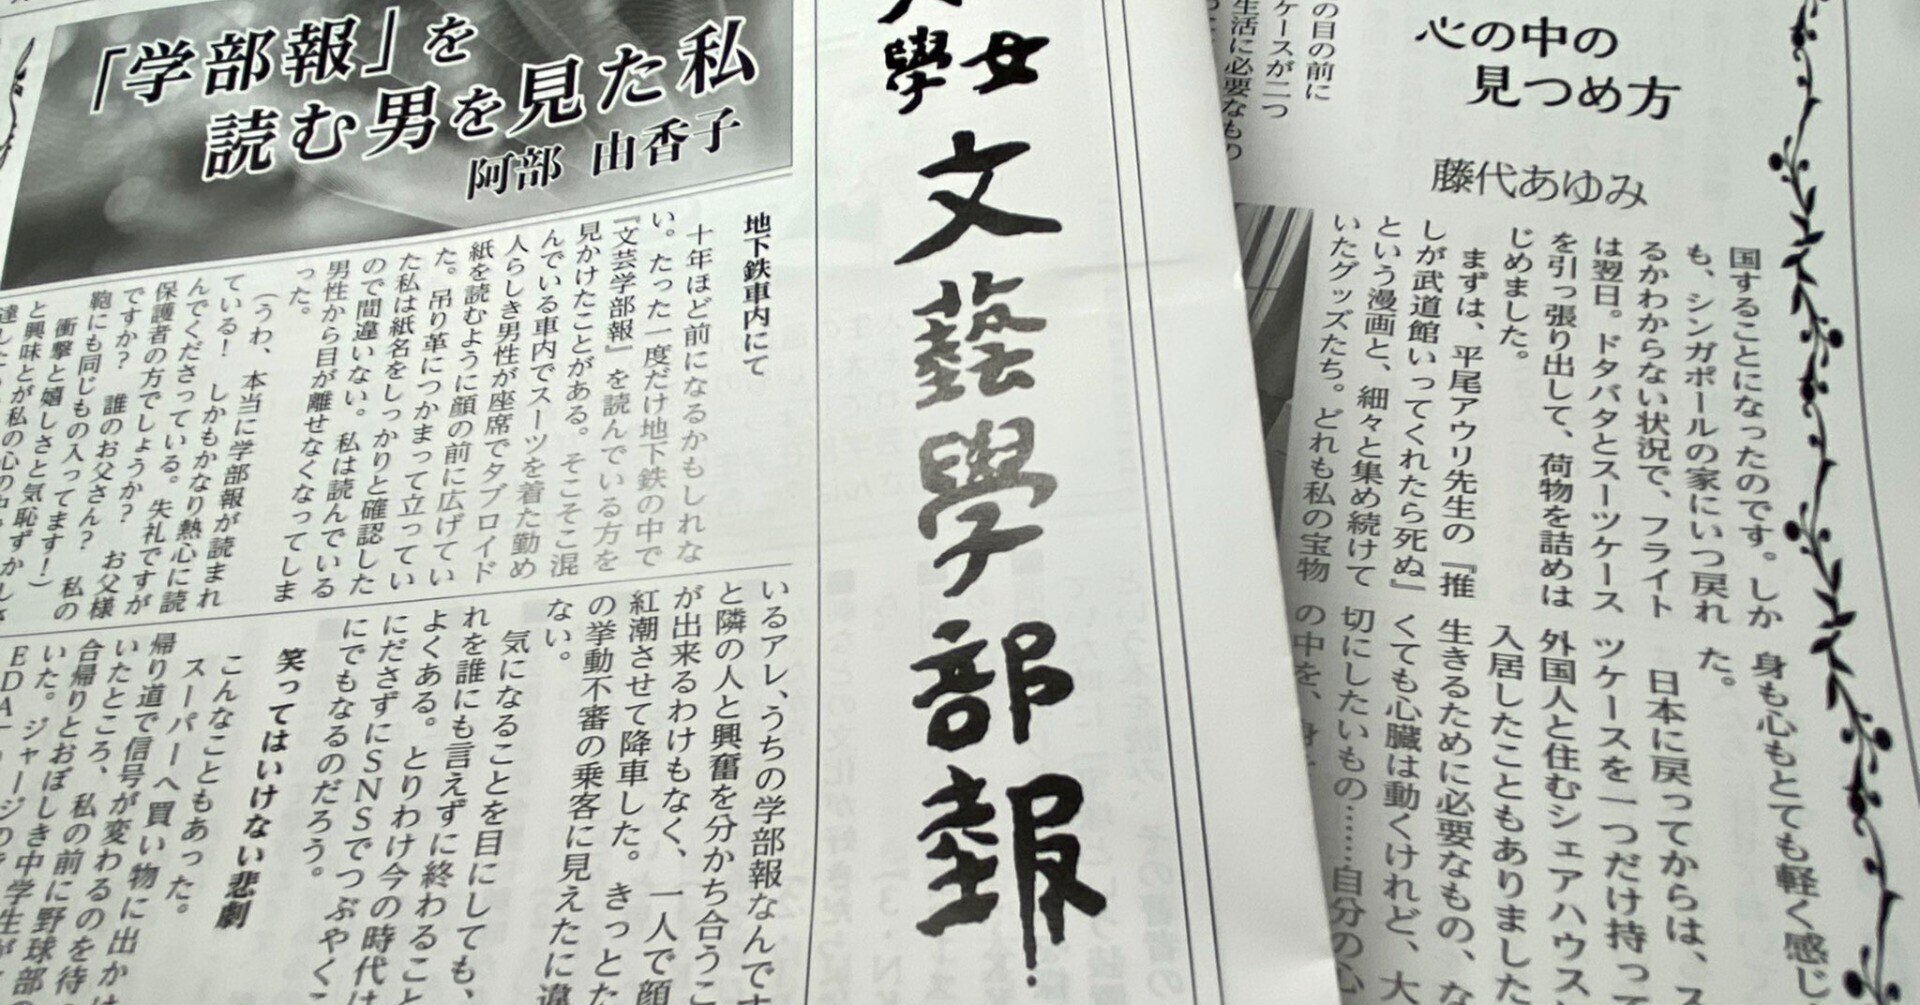 「学部報」を
読む男を見た私
阿部 由香子
地下鉄車内にて
十年ほど前になるかもしれな
い。たった一度だけ地下鉄の中で
『文芸学部報』を読んでいる方を
見かけたことがある。そこそこ混
んでいる車内でスーツを着た勤め
人らしき男性が座席でタブロイド
紙を読むように顔の前に広げてい
た。吊り革につかまって立ってい
た私は紙名をしっかりと確認した
ので間違いない。私は読んでいる
男性から目が離せなくなってしま
った。
(うわ、本当に学部報が読まれ
ている! しかもかなり熱心に読
んでくださっている。失礼ですが
保護者の方でしょうか? お父様
ですか? 誰のお父さん? 私の
鞄にも同じもの入ってます!)
衝撃と嬉しさと気恥ずかしさ
と興味とが私の心の中で
いるアレ、うちの学部報なんです
と隣の人と興奮を分かち合うこ
が出来るわけもなく、一人で顔
紅潮させて降車した。きっとた
の挙動不審の乗客に見えたに違
ない。
気になることを目にしても、
れを誰にも言えずに終わること
よくある。とりわけ今の時代は
にださずにSNSでつぶやくこ
にでもなるのだろう。
笑ってはいけない悲劇
こんなこともあった。
スーパーへ買い物に出かけ
帰り道で信号が変わるのを待
いたところ、私の前に野球部の
合帰りとおぼしき中学生が
いた。ジャージの
女
學
文藝學部報
心の中の
見つめ方
藤代あゆみ
の目の前に
ケースが二つ
生活に必要なもの
国することになったのです。しか
も、シンガポールの家にいつ戻れ
るかわからない状況で、フライト
は翌日。ドタバタとスーツケース
を引っ張り出して、荷物を詰めは
じめました。
まずは、平尾アウリ先生の『推
しが武道館いってくれたら死ぬ』
という漫画と、細々と集め続けて
いたグッズたち。どれも私の宝物
身も心もとても軽く感じ
た。
日本に戻ってからは、ス
ツケースを一つだけ持って
外国人と住むシェアハウス
入居したこともありました
生きるために必要なもの、な
くても心臓は動くけれど、大
切にしたいもの……自分の心
の中を、